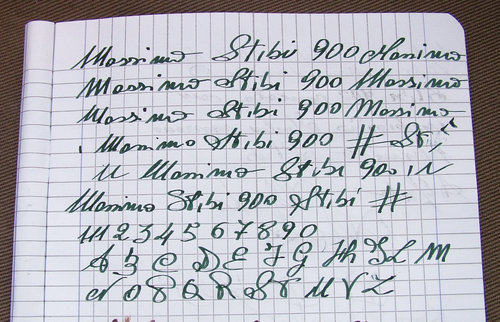 Massimo Stibi 900 Massimo
Massimo Stibi 900 Massimo
Massimo Stibi 900 Massimo
Massimo Stibi 900 H St
M Massimo Stibi 900 M
Massimo Stibi 900 Stibi H
1 2 3 4 5 6 7 8 9 0
A B C D E F G H I L M
N O P Q R S T U V Z